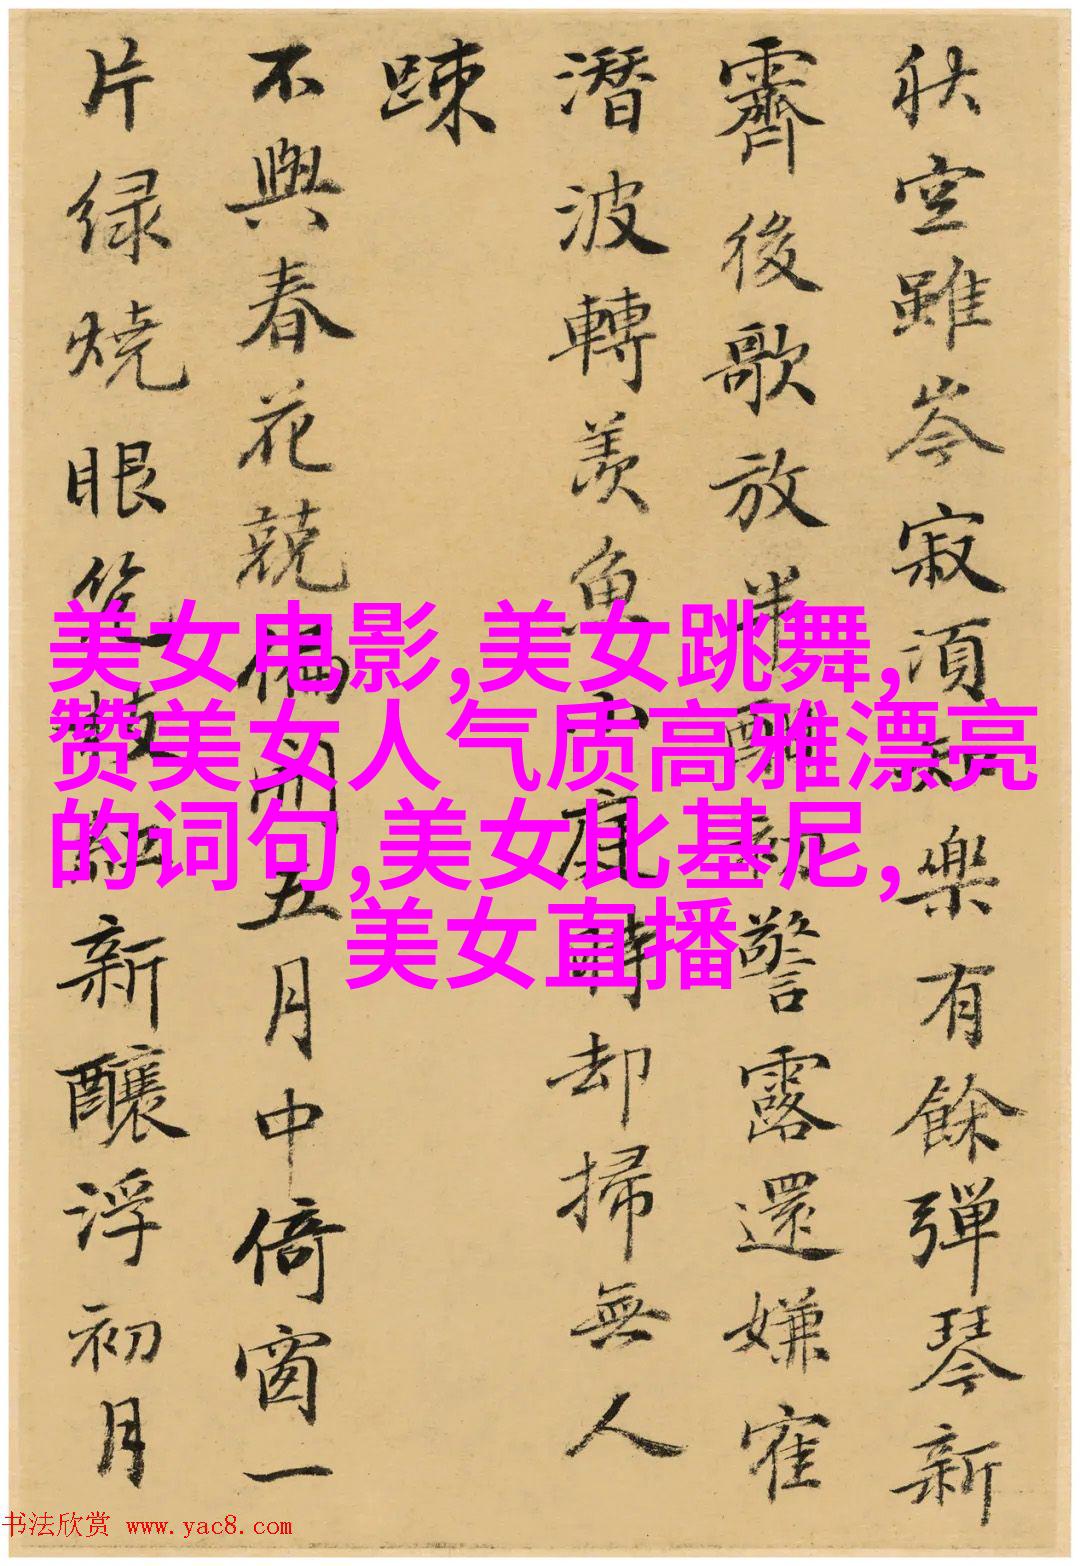 秋空雖岑寂湏知樂有餘彈琴新
霽後歌放半酣初警露還嫌寉
潛波轉羨魚小庭時却掃無人
踈
不與春花競偏開五月中倚窗一
片緑燒眼幾枝紅新釀浮初月
美女电影,美女跳舞,
赞美女人气质高雅漂亮
的词句,美女比基尼,
美女直播
书法欣赏 www.yac8.com